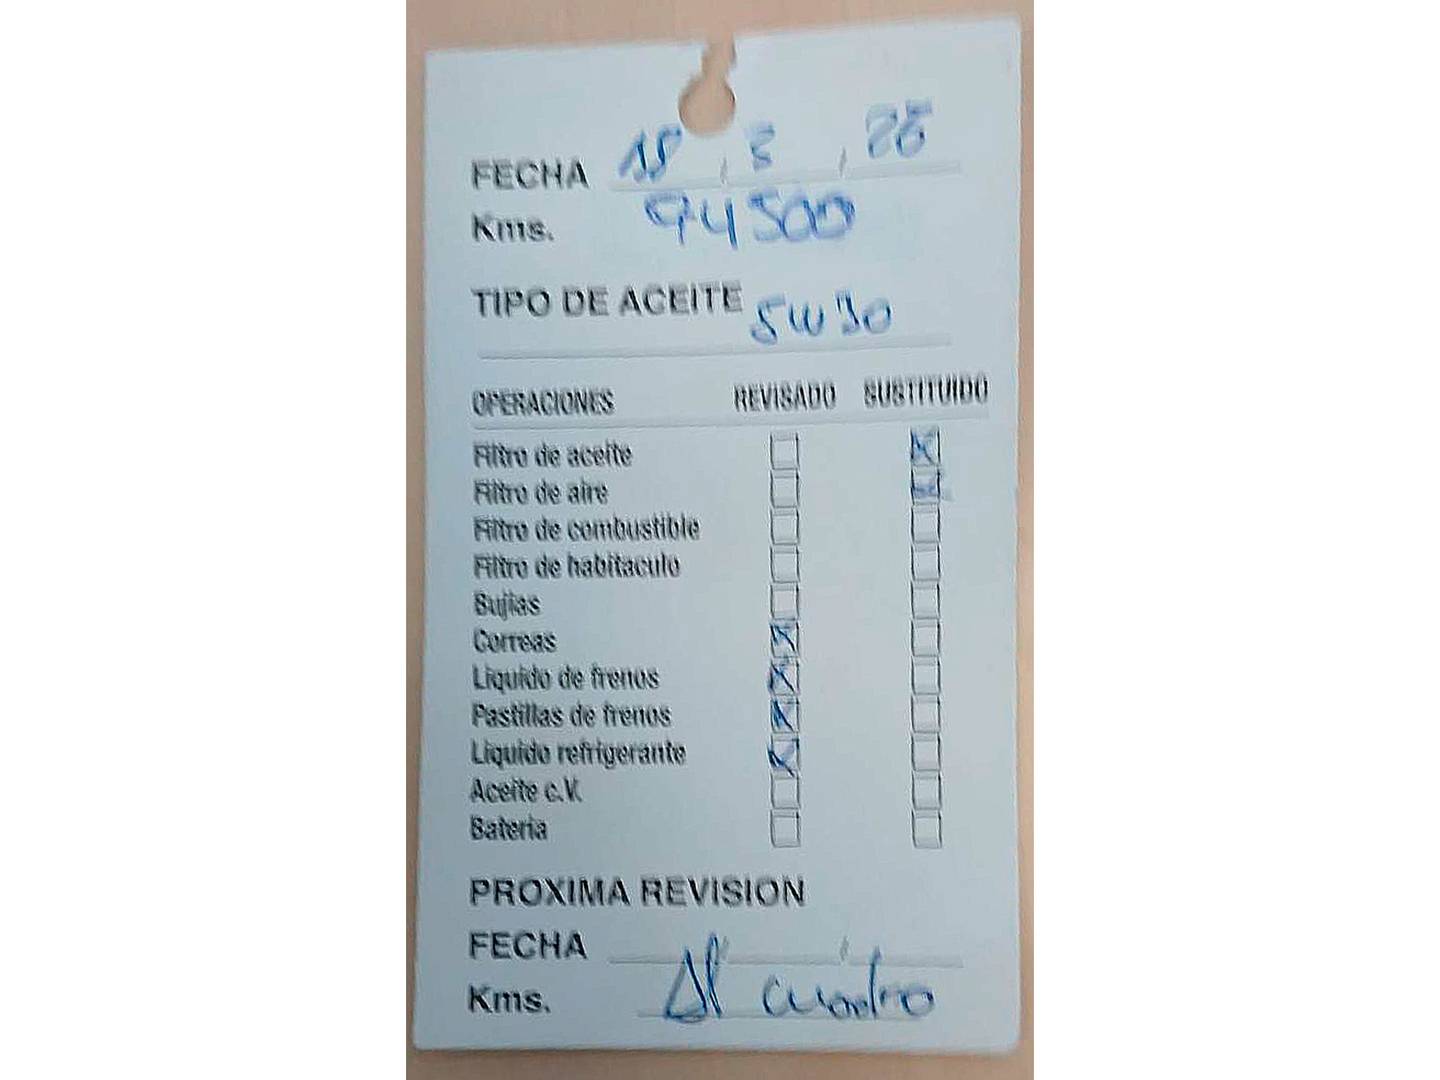 FECHA 18 / 3 / 25
Kms. 94500
TIPO DE ACEITE 5W30
OPERACIONES REVISADO SUSTITUIDO
Filtro de aceite
Filtro de aire
Filtro de combustible
Filtro de habitaculo
Bujias
Correas
Liquido de frenos
Pastillas de frenos
Liquido refrigerante
Aceite c.V.
Bateria
PROXIMA REVISION
FECHA
Kms. Al cuadro